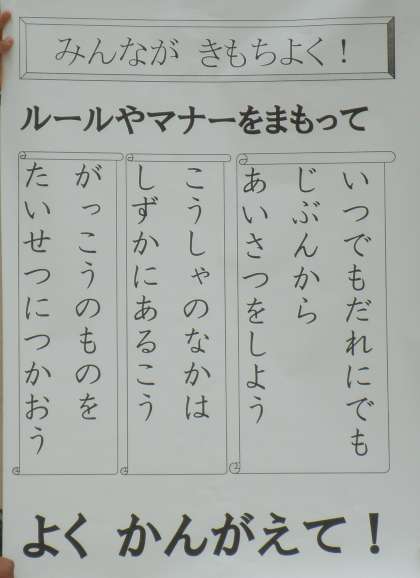 みんなが きもちよく！
ルールやマナーをまもって
いつでもだれにでも
じぶんから
あいさつをしよう
こうしゃのなかは
しずかにあるこう
がっこうのものを
たいせつにつかおう
よく かんがえて！